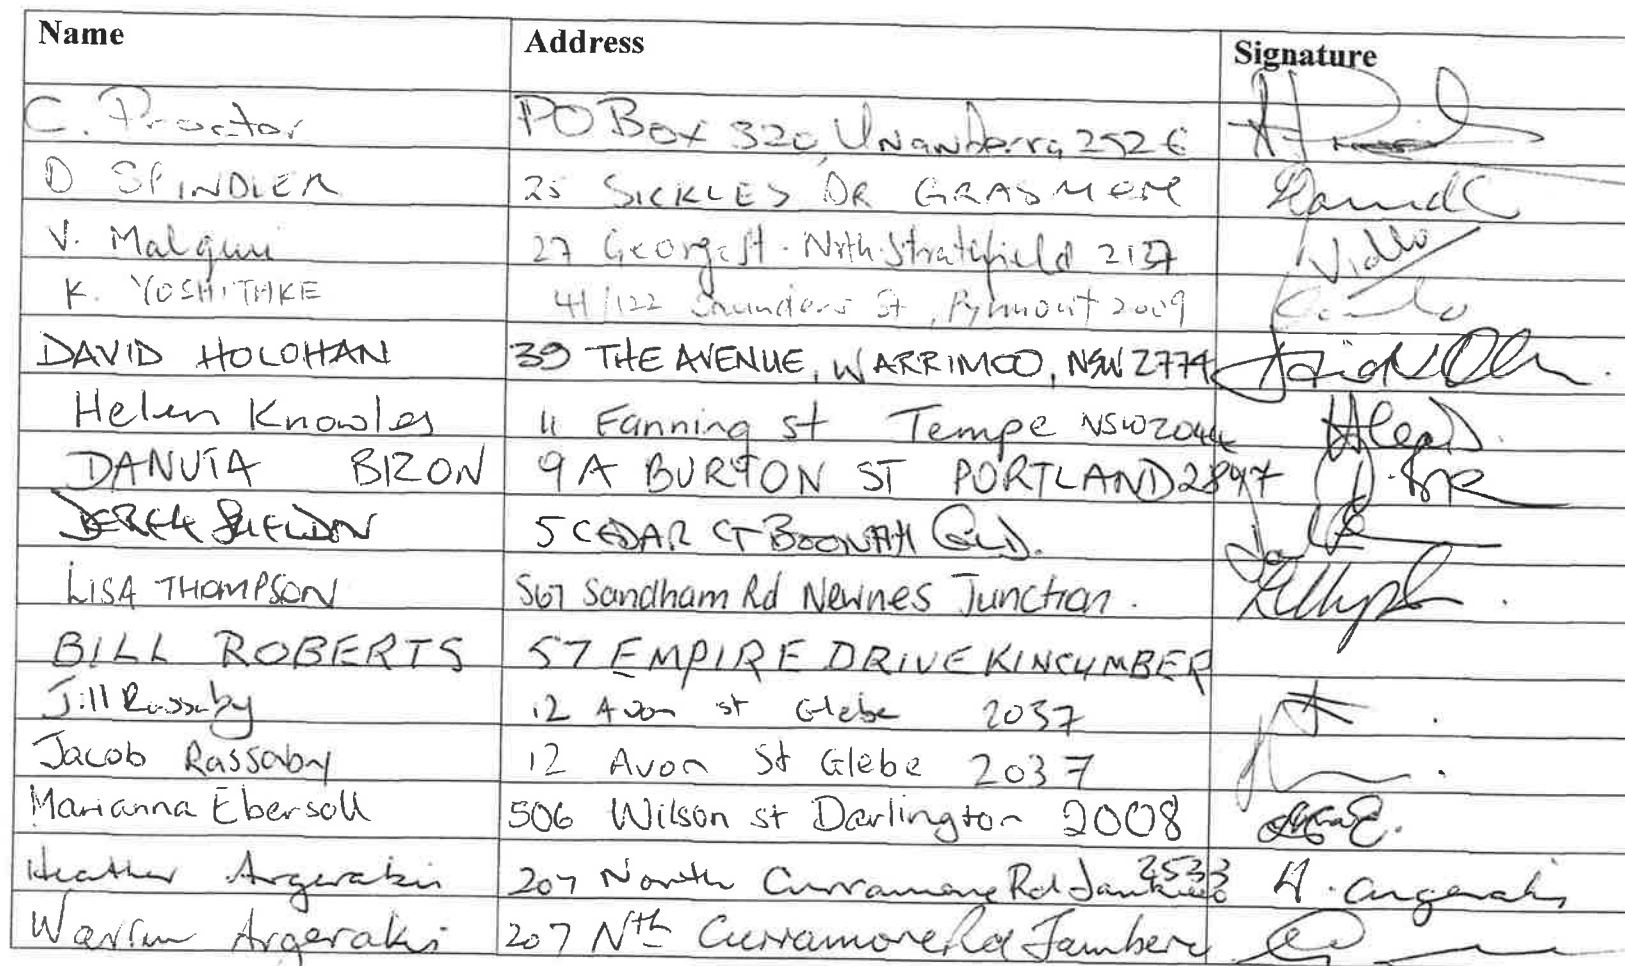 Name Address Signature
C. Proctor PO Box 320, Unanderra 2526
D SPINDLER 25 SICKLES DR GRASMERE
V. Malqui 27 George St. Nrth Strathfield 2137
K. YOSHITAKE 41/122 Saunders St, Pyrmont 2009
DAVID HOLOHAN 39 THE AVENUE, WARRIMOO, NSW 2774
Helen Knowles 11 Fanning st Tempe NSW 2044
DANUTA BIZON 9A BURTON ST PORTLAND 2847
DEREK SHELDON 5 CEDAR CT BOONAH QLD.
LISA THOMPSON Sandham Rd Newnes Junction.
BILL ROBERTS 57 EMPIRE DRIVE KINCUMBER
Jill Rassaby 12 Avon st Glebe 2037
Jacob Rassaby 12 Avon St Glebe 2037
Marianna Ebersoll 506 Wilson st Darlington 2008
Heather Argerakis 207 North Curramore Rd Jamberoo 2533 H. Argerakis
Warren Argerakis 207 Nth Curramore Rd Jambero